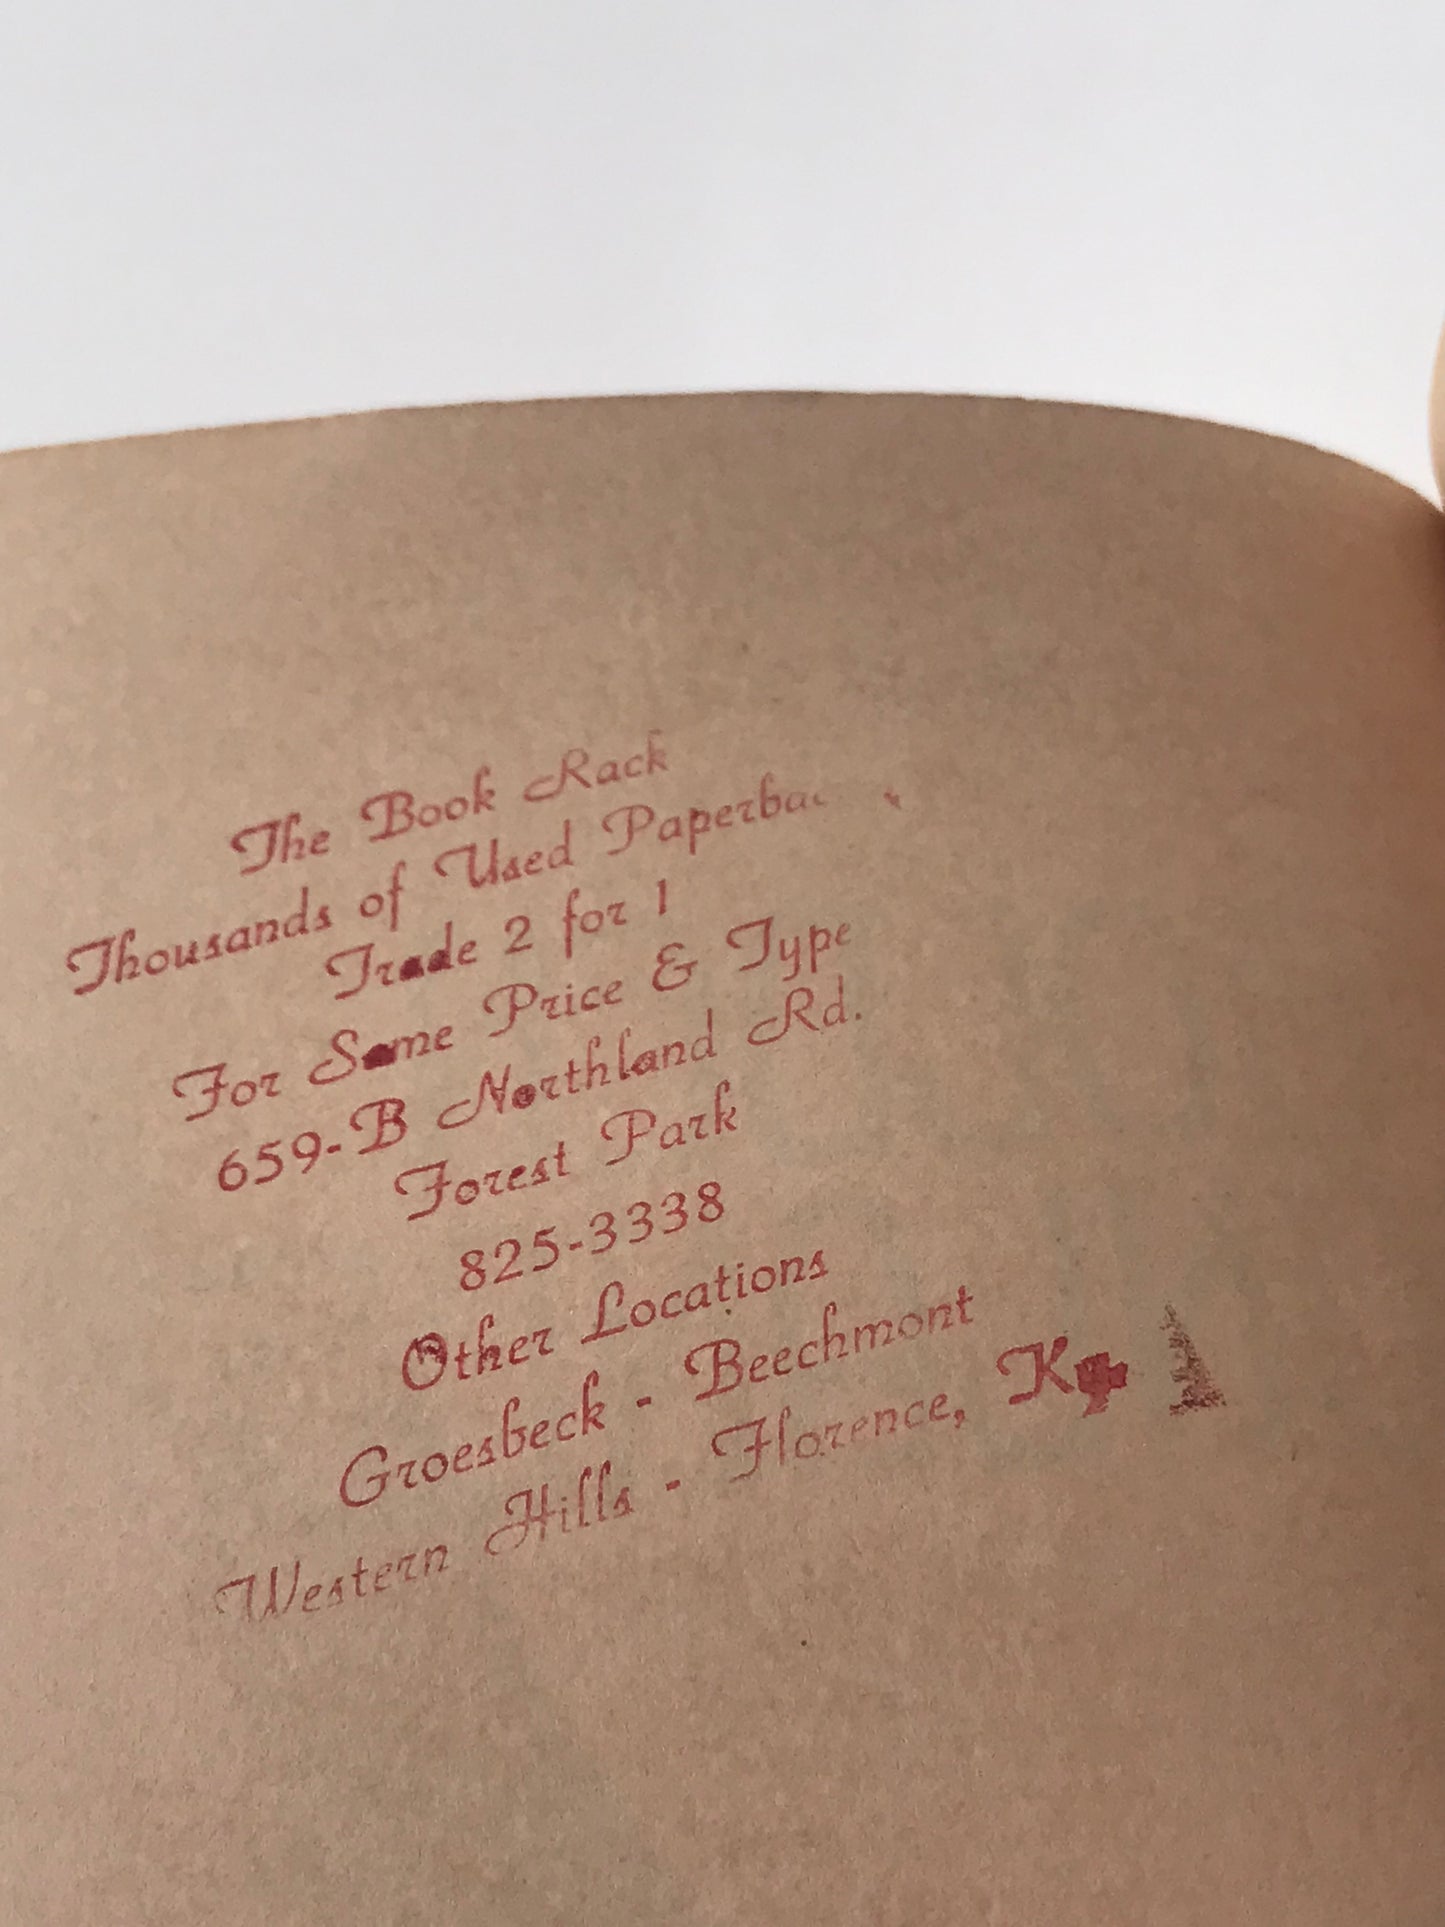 The Book Rack
Thousands of Used
Trade 2 for 1
For Same Price & Type
659-B Northland Rd.
Forest Park
825-3338
Other Locations
Groesbeck - Beechmont
Western Hills - Florence, Ky